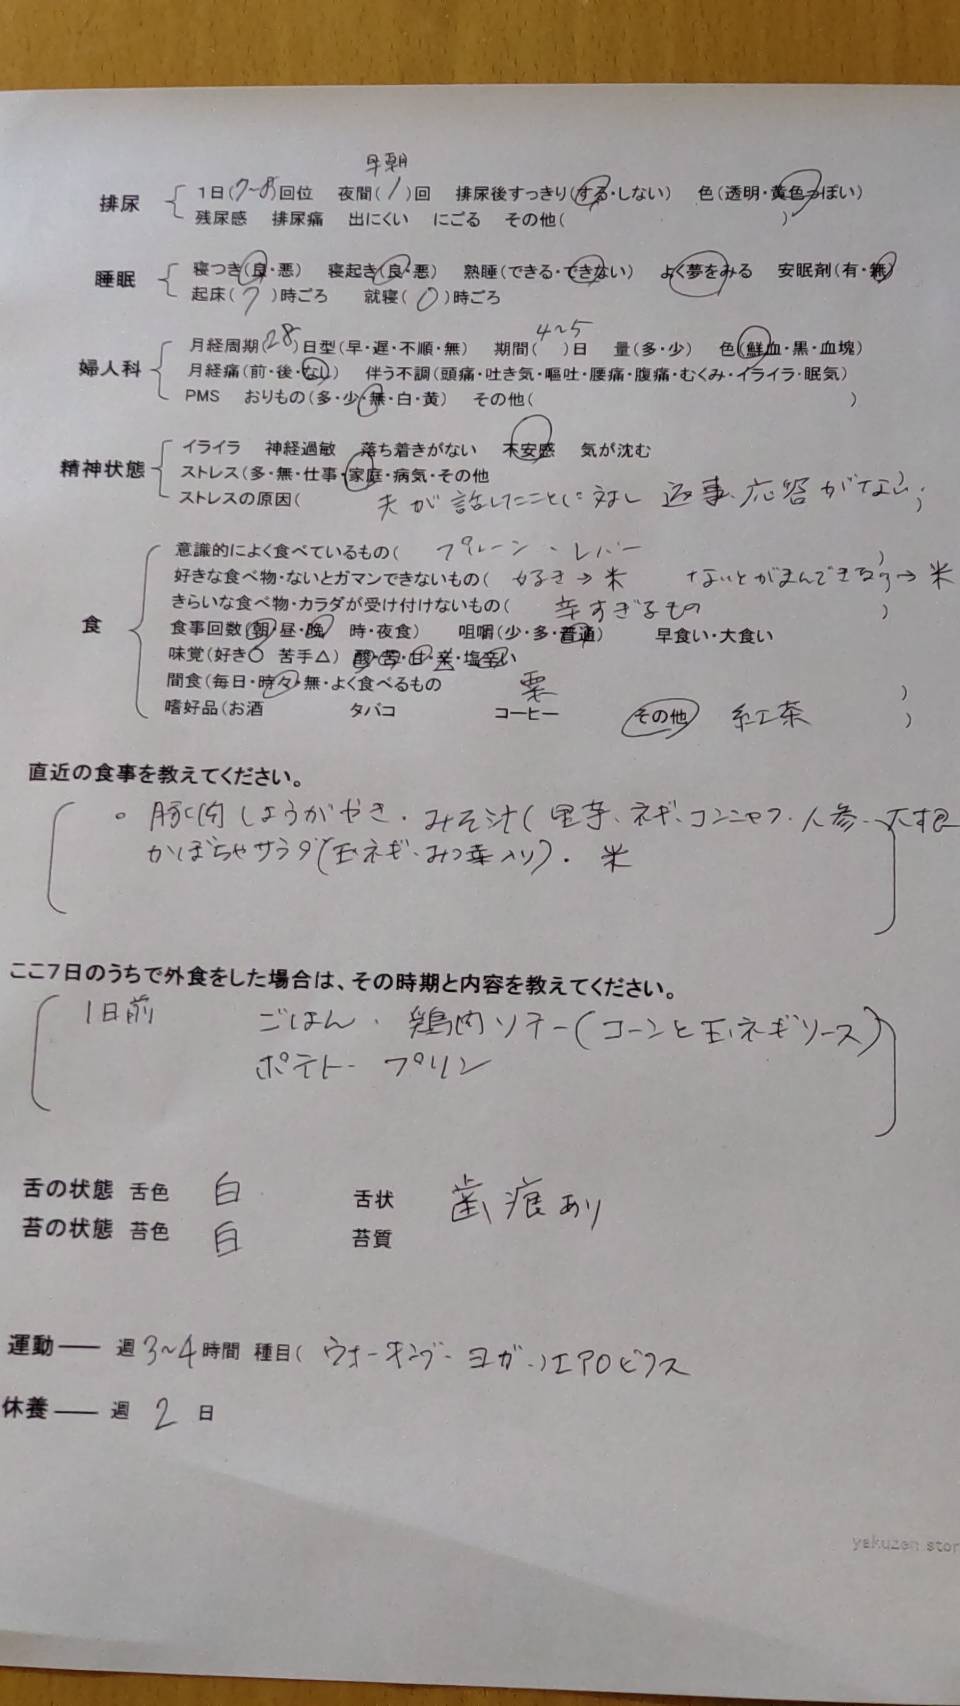 早朝
排尿 1日(7~8)回位 夜間(1)回 排尿後すっきり(する・しない) 色(透明・黄色っぽい)
残尿感 排尿痛 出にくい にごる その他( )
睡眠 寝つき(良・悪) 寝起き(良・悪) 熟睡(できる・できない) よく夢をみる 安眠剤(有・無)
起床(7)時ごろ 就寝(0)時ごろ
婦人科 月経周期(28)日型(早・遅・不順・無) 期間(4~5)日 量(多・少) 色(鮮血・黒・血塊)
月経痛(前・後・なし) 伴う不調(頭痛・吐き気・嘔吐・腰痛・腹痛・むくみ・イライラ・眠気)
PMS おりもの(多・少・無・白・黄) その他( )
精神状態 イライラ 神経過敏 落ち着きがない 不安感 気が沈む
ストレス(多・無・仕事・家庭・病気・その他
ストレスの原因( 夫が話したことに対し 返事、応答がない )
食 意識的によく食べているもの( プルーン・レバー )
好きな食べ物・ないとガマンできないもの( 好き→米 ないとがまんできない→米
きらいな食べ物・カラダが受け付けないもの( 辛すぎるもの )
食事回数(朝・昼・晩 時・夜食) 咀嚼(少・多・普通) 早食い・大食い
味覚(好き○ 苦手△) 酸・苦・甘・辛・塩辛い
間食(毎日・時々・無・よく食べるもの 栗 )
嗜好品(お酒 タバコ コーヒー その他 紅茶 )
直近の食事を教えてください。
○ 豚肉しょうがやき・みそ汁(里芋、ネギ、コンニャク・人参・大根
かぼちゃサラダ(玉ネギ・みつ葉入り)・米
ここ7日のうちで外食をした場合は、その時期と内容を教えてください。
1日前 ごはん・鶏肉ソテー(コーンと玉ネギソース)
ポテト・プリン
舌の状態 舌色 白 舌状 歯痕あり
苔の状態 苔色 白 苔質
運動―― 週3~4時間 種目( ウォーキング・ヨガ・)エアロビクス
休養―― 週 2 日
yakuzen stor